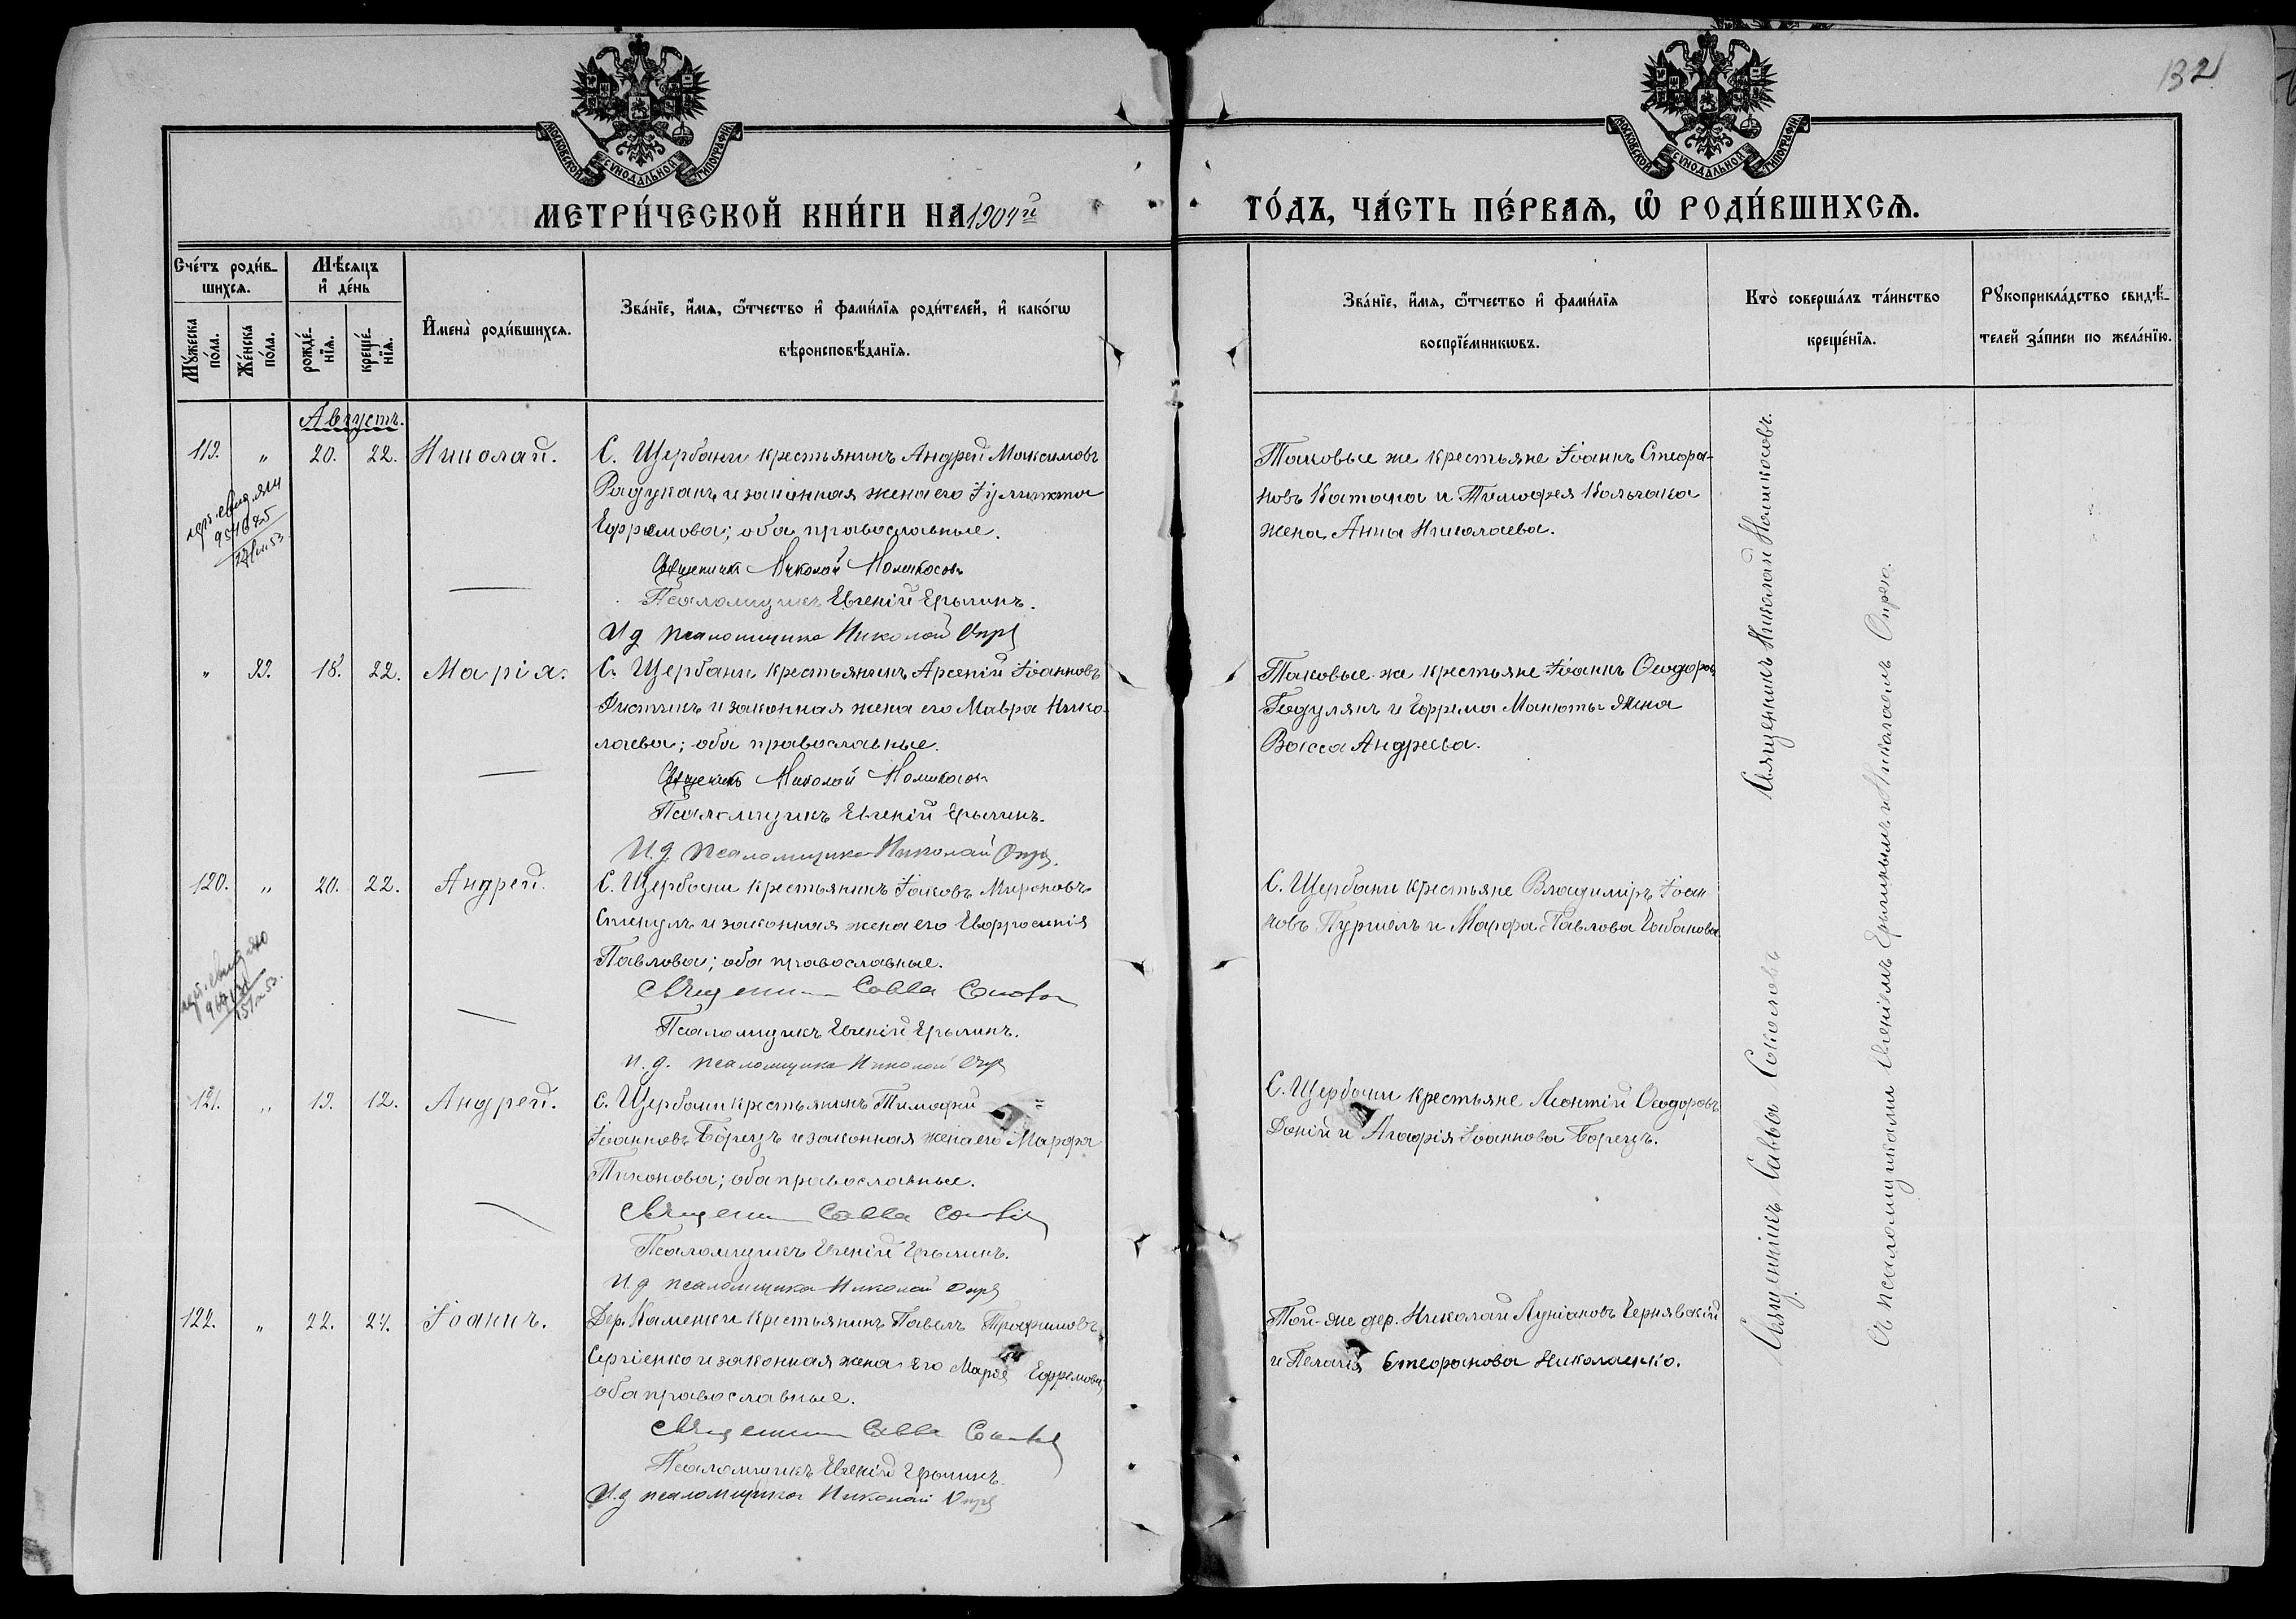 132
МОСКОВСКОЙ СУНОДАЛЬНОЙ ТИПОГРАФІИ
МОСКОВСКОЙ СУНОДАЛЬНОЙ ТИПОГРАФІИ
МЕТРИ́ЧЕСКОЙ КНИ́ГИ НА 1904й ГО́ДЪ, ЧА́СТЬ ПЕ́РВАѦ, Ѡ҆ РОДИ́ВШИХСѦ.
Сче́тъ роди́вшихсѧ.
Мѹ́жеска по́ла.
Же́нска по́ла.
Мѣ́сѧцъ и҆ де́нь
рожде́нїѧ.
креще́нїѧ.
И҆мена̀ роди́вшихсѧ.
Зва́нїе, и҆́мѧ, ѻ҆́тчество и҆ фами́лїѧ роди́телей, и҆ како́гѡ
вѣроисповѣ́данїѧ.
Зва́нїе, и҆́мѧ, ѻ҆́тчество и҆ фами́лїѧ
воспрїе́мникѡвъ.
Кто̀ соверша́лъ та́инство
креще́нїѧ.
Рѹкоприкла́дство свидѣ́телей за́писи по жела́нїю.
Августъ.
119. " 20. 22. Николай.
С. Щербани крестьянинъ Андрей Максимовъ
Радуканъ и законная жена его Іулитта
Ефремова; оба православные.
Священникъ Николай
Псаломщикъ Евгеній Ерылинъ.
И д псаломщика Николай Опря
Таковые же крестьяне Іоаннъ Стефановъ Катана и Тимофея Колчака
жена Анна Николаева.
" 99. 18. 22. Марія.
С. Щербани крестьянинъ Арсеній Іоанновъ
Фистинъ и законная жена его Мавра Николаева; оба православные.
Священникъ Николай
Псаломщикъ Евгеній Ерылинъ.
И. д. псаломщика Николай Опря.
Таковые же крестьяне Іоаннъ Ѳеодоровъ
Годулянъ и Ефрема Манюты жена
Васса Андреева.
120. " 20. 22. Андрей.
С. Щербани крестьянинъ Іаковъ Мироновъ
Стинулъ и законная жена его Евфросинія
Павлова; оба православные.
Священникъ Савва Соколовъ
Псаломщикъ Евгеній Ерылинъ.
И. д. псаломщика Николай Опря
С. Щербани крестьяне Владиміръ Іоанновъ Пуршелъ и Марфа Павлова Чабанова.
121. " 19. 12. Андрей.
С. Щербани крестьянинъ Тимофей =
Іоанновъ Борецъ и законная жена его Марфа
Тихонова; оба православные.
Священникъ Савва Соколовъ
Псаломщикъ Евгеній Ерылинъ.
И д псаломщика Николай Опря
С. Щербани крестьяне Леонтій Ѳеодоровъ
Доній и Агафія Іоаннова Борецъ.
122. " 22. 24. Іоаннъ.
Дер. Каменки крестьянинъ Павелъ Трофимовъ
Сергіенко и законная жена его Марія Ефремова;
оба православные.
Священникъ Савва Соколовъ
Псаломщикъ Евгеній Ерылинъ
И. д псаломщика Николай Опря
Той-же дер. Николай Лукіановъ Чернявскій
и Пелагія Стефанова Николаенко.
Священникъ Савва Соколовъ Священникъ Николай
съ псаломщиками Евгеніемъ Ерылинымъ и Николаемъ Опрею.